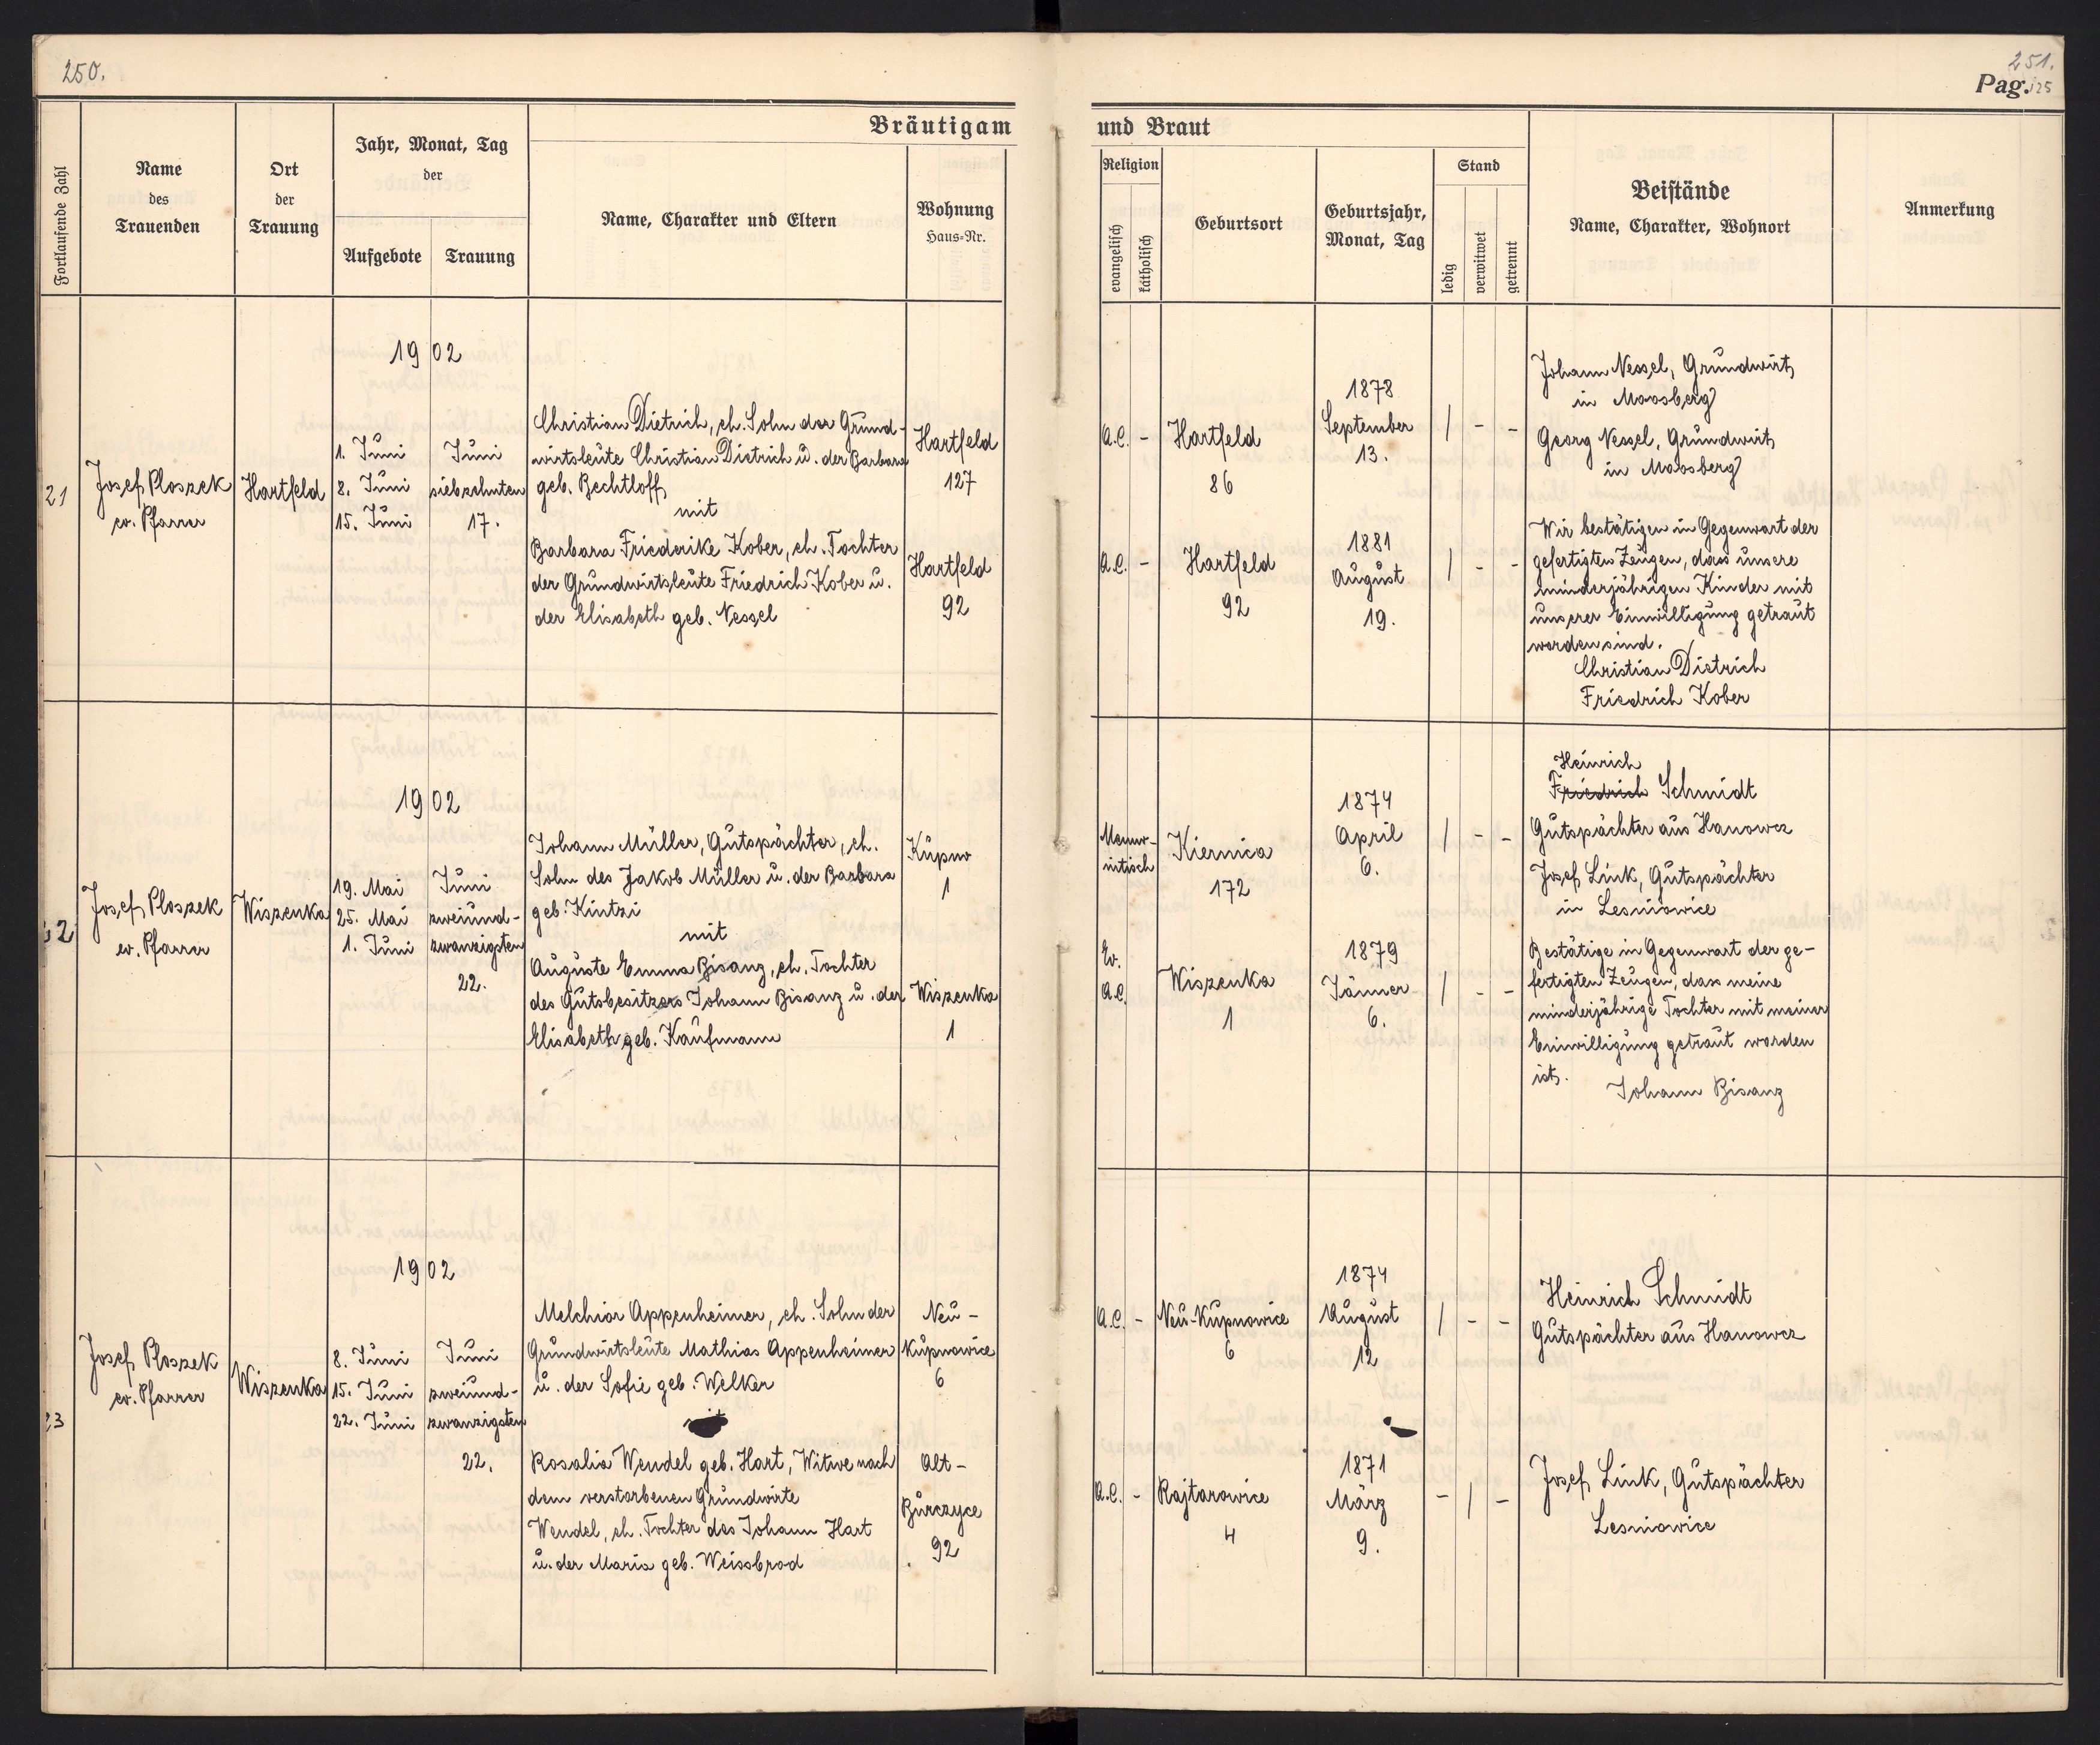 250.
251.
Pag. 125
Bräutigam und Braut
Fortlaufende Zahl
Name
des
Trauenden
Ort
der
Trauung
Jahr, Monat, Tag
der
Aufgebote
Trauung
Name, Charakter und Eltern
Wohnung
Haus-Nr.
Religion
evangelisch
katholisch
Geburtsort
Geburtsjahr,
Monat, Tag
Stand
ledig
verwitwet
getrennt
Beistände
Name, Charakter, Wohnort
Anmerkung
21
Josef Ploszek
ev. Pfarrer
Hartfeld
1902
1. Juni
8. Juni
15. Juni
Juni
siebzehnten
17.
Christian Dietrich, eh. Sohn der Grund-
wirtsleute Christian Dietrich u. der Barbara
geb. Bechtloff
mit
Barbara Friederike Kober, eh. Tochter
der Grundwirtsleute Friedrich Kober u.
der Elisabeth geb. Nessel
Hartfeld
127
Hartfeld
92
A.C. -
Hartfeld
86
1878
September
13.
/ - -
A.C. -
Hartfeld
92
1881
August
19.
/ - -
Johann Nessel, Grundwirt
in Moosberg
Georg Nessel, Grundwirt
in Moosberg
Wir bestätigen in Gegenwart der
gefertigten Zeugen, dass unsere
minderjährigen Kinder mit
unserer Einwilligung getraut
worden sind.
Christian Dietrich
Friedrich Kober
2
Josef Ploszek
ev. Pfarrer
Wiszenka
1902
19. Mai
25. Mai
1. Juni
Juni
zweiund-
zwanzigsten
22.
Johann Müller, Gutspächter, eh.
Sohn des Jakob Müller u. der Barbara
geb. Kintzi
mit
Auguste Emma Bisanz, eh. Tochter
des Gutsbesitzers Johann Bisanz u. der
Elisabeth geb. Kaufmann
Kupno
1
Wiszenka
1
Menno-
nitisch
Kiernica
172
1874
April
6.
/ - -
Ev.
A.C.
Wiszenka
1
1879
Jänner
6.
/ - -
Heinrich
Friedrich Schmidt
Gutspächter aus Hanowcz
Josef Link, Gutspächter
in Lesniowice
Bestätige in Gegenwart der ge-
fertigten Zeugen, dass meine
minderjährige Tochter mit meiner
Einwilligung getraut worden
ist.
Johann Bisanz
23
Josef Ploszek
ev. Pfarrer
Wiszenka
1902
8. Juni
15. Juni
22. Juni
Juni
zweiund-
zwanzigsten
22.
Melchior Appenheimer, eh. Sohn der
Grundwirtsleute Mathias Appenheimer
u. der Sofie geb. Welker
mit
Rosalia Wendel geb. Hart, Witwe nach
dem verstorbenen Grundwirte
Wendel, eh. Tochter des Johann Hart
u. der Maria geb. Weissbrod
Neu-
Kupnowice
6
Alt-
Burczyce
92
A.C. -
Neu-Kupnowice
6
1874
August
12
/ - -
A.C. -
Rajtarowice
4
1871
März
9.
- / -
Heinrich Schmidt
Gutspächter aus Hanowcz
Josef Link, Gutspächter
Lesniowice